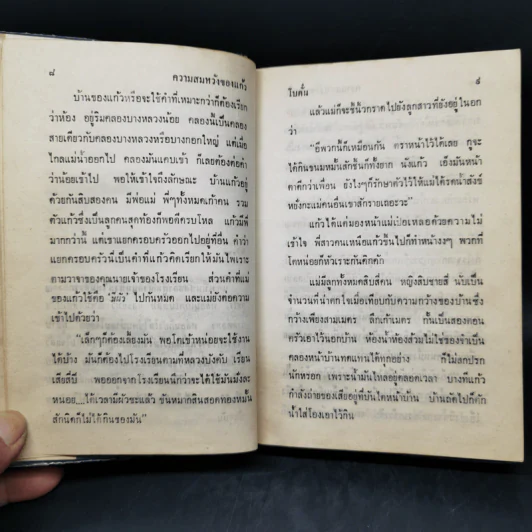 ๘ ความสมหวังของแก้ว
บ้านของแก้วหรือจะใช้คำที่เหมาะกว่าก็ต้องเรียก
ว่าห้อง อยู่ริมคลองบางหลวงน้อย คลองนี้เป็นคลอง
สายเดียวกับคลองบางหลวงหรือบางกอกใหญ่ แต่เมื่อ
ไกลแม่น้ำออกไป คลองมันแคบเข้า ก็เลยต้องต่อคำ
ว่าน้อยเข้าไป พอให้เข้าใจถึงลักษณะ บ้านแก้วอยู่
ด้วยกันสิบสองคน มีพ่อแม่ พี่ๆทั้งหมดเก้าคน รวม
ตัวแก้วซึ่งเป็นลูกคนสุดท้องก็พอดีครบโหล แก้วมีพี่
มากกว่านี้ แต่เขาแยกครอบครัวออกไปอยู่ที่อื่น คำว่า
แยกครอบครัวนี้เป็นคำที่แก้วคิดเรียกให้มันไพเราะ
ตามวาจาของคุณนายเจ้าของโรงเรียน ส่วนคำที่แม่
ของแก้วใช้คือ "มีผัว" ไปกันหมด และแม่ยังต่อความ
เข้าไปด้วยว่า
"เล็กๆก็ต้องเลี้ยงมัน พอโตเข้าหน่อยจะใช้งาน
ได้บ้าง มันก็ต้องไปโรงเรียนตามที่หลวงบังคับ เรียน
เสียสี่ปี พอออกจากโรงเรียนนึกว่าจะได้ใช้มันมั่งละ
หนอย....ได้เวลามีผัวซะแล้ว ขันหมากสินสอดทองหมั้น
สักนิดก็ไม่ได้กินของมัน"
ใบคั่น ๙
แล้วแม่ก็จะชี้นิ้วกราดไปยังลูกสาวที่ยังอยู่ในอก
ว่า
"อีพวกนี้ก็เหมือนกัน คราหน้าไว้ได้เลย กูจะ
ได้กินขนมหมั้นสักชิ้นก็ทั้งยาก นังแก้ว เอ็งมันหน้า
ตาดีกว่าเพื่อน ยังไงๆก็รักษาตัวไว้ให้แม่ได้รดน้ำสังข์
หยั่งกะแม่คนอื่นเขาสักรายเถอะวะ"
แก้วได้แต่มองหน้าแม่เป๋อเหลอด้วยความไม่
เข้าใจ พี่สาวคนเหนือแก้วขึ้นไปก็ทำหน้างงๆ พวกที่
โตหน่อยก็หัวเราะกันคิกคัก
แม่มีลูกทั้งหมดสิบสี่คน หญิงสิบชายสี่ นับเป็น
จำนวนที่น่าตกใจเมื่อเทียบกับความกว้างของบ้านซึ่ง
กว้างเพียงสามเมตร ลึกเก้าเมตร กั้นเป็นสองตอน
ครัวเอาไว้นอกบ้าน ห้องน้ำห้องส้วมไม่ใช่จำเป็น
คลองหน้าบ้านทดแทนได้ทุกอย่าง ก็ไม่สกปรก
นักหรอก เพราะน้ำมันไหลอยู่ตลอดเวลา บางทีแก้วก็
กำลังถ่ายของเสียอยู่ที่บันไดหน้าบ้าน บ้านถัดไปก็ตัก
น้ำใส่โอ่งเอาไว้กิน